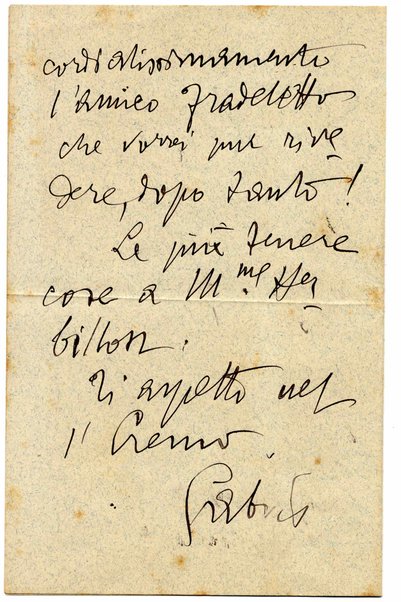 cordialissimamente
l'amico Fradeletto
che vorrei pur rive
dere, dopo tanto!
Le più tenere
cose a M.me Her
billon.
Ti aspetto nel
l'Eremo.